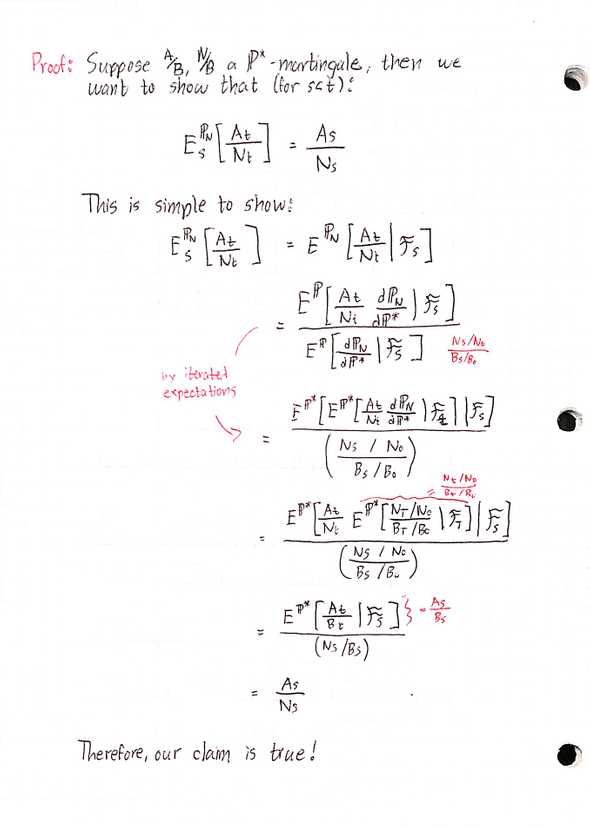 Proof: Suppose A/B, N/B a ℙ*-martingale, then we
want to show that (for s<t):
E_s^{ℙ_N}[A_t/N_t] = A_s/N_s
This is simple to show:
E_s^{ℙ_N}[A_t/N_t] = E^{ℙ_N}[A_t/N_t | F_s]
= E^ℙ[A_t/N_t dℙ_N/dℙ* | F_s] / E^ℙ[dℙ_N/dℙ* | F_s]
N_s/N_0 / B_s/B_0
by iterated
expectations
= E^{ℙ*}[E^{ℙ*}[A_t/N_t dℙ_N/dℙ* | F_t] | F_s] / (N_s/N_0 / B_s/B_0)
= N_t/N_0 / B_t/B_0
= E^{ℙ*}[A_t/N_t E^{ℙ*}[N_T/N_0 / B_T/B_0 | F_T] | F_s] / (N_s/N_0 / B_s/B_0)
= E^{ℙ*}[A_t/B_t | F_s] / (N_s/B_s) } = A_s/B_s
= A_s/N_s
Therefore, our claim is true!